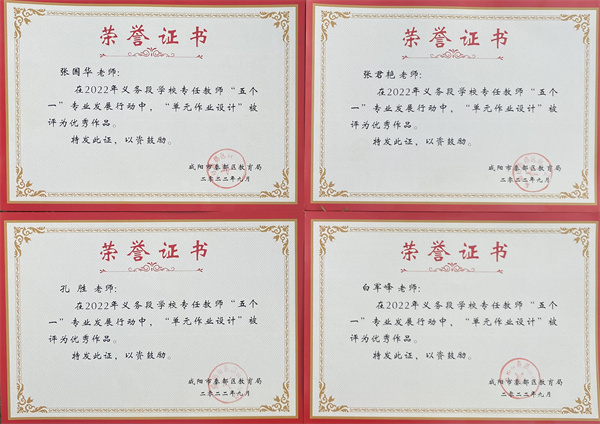 荣誉证书
张国华老师:
在2022年义务段学校专任教师“五个
一”专业发展行动中，“单元作业设计”被
评为优秀作品。
特发此证，以资鼓励。
咸阳市秦都区教育局
二〇二二年九月
荣誉证书
张君艳老师:
在2022年义务段学校专任教师“五个
一”专业发展行动中，“单元作业设计”被
评为优秀作品。
特发此证，以资鼓励。
咸阳市秦都区教育局
二〇二二年九月
荣誉证书
孔 胜 老师:
在2022年义务段学校专任教师“五个
一”专业发展行动中，“单元作业设计”被
评为优秀作品。
特发此证，以资鼓励。
咸阳市秦都区教育局
二〇二二年九月
荣誉证书
白军峰老师:
在2022年义务段学校专任教师“五个
一”专业发展行动中，“单元作业设计”被
评为优秀作品。
特发此证，以资鼓励。
咸阳市秦都区教育局
二〇二二年九月